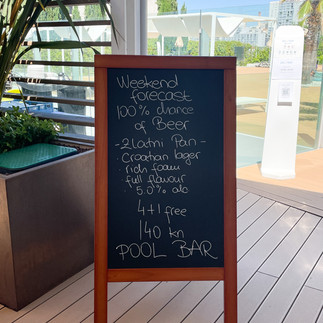 Weekend
forecast
100% chance
of Beer
- Zlatni Pan -
· Croatian lager
· rich foam
· full flavour
· 5.0% alc
4+1 free
140 kn
POOL BAR